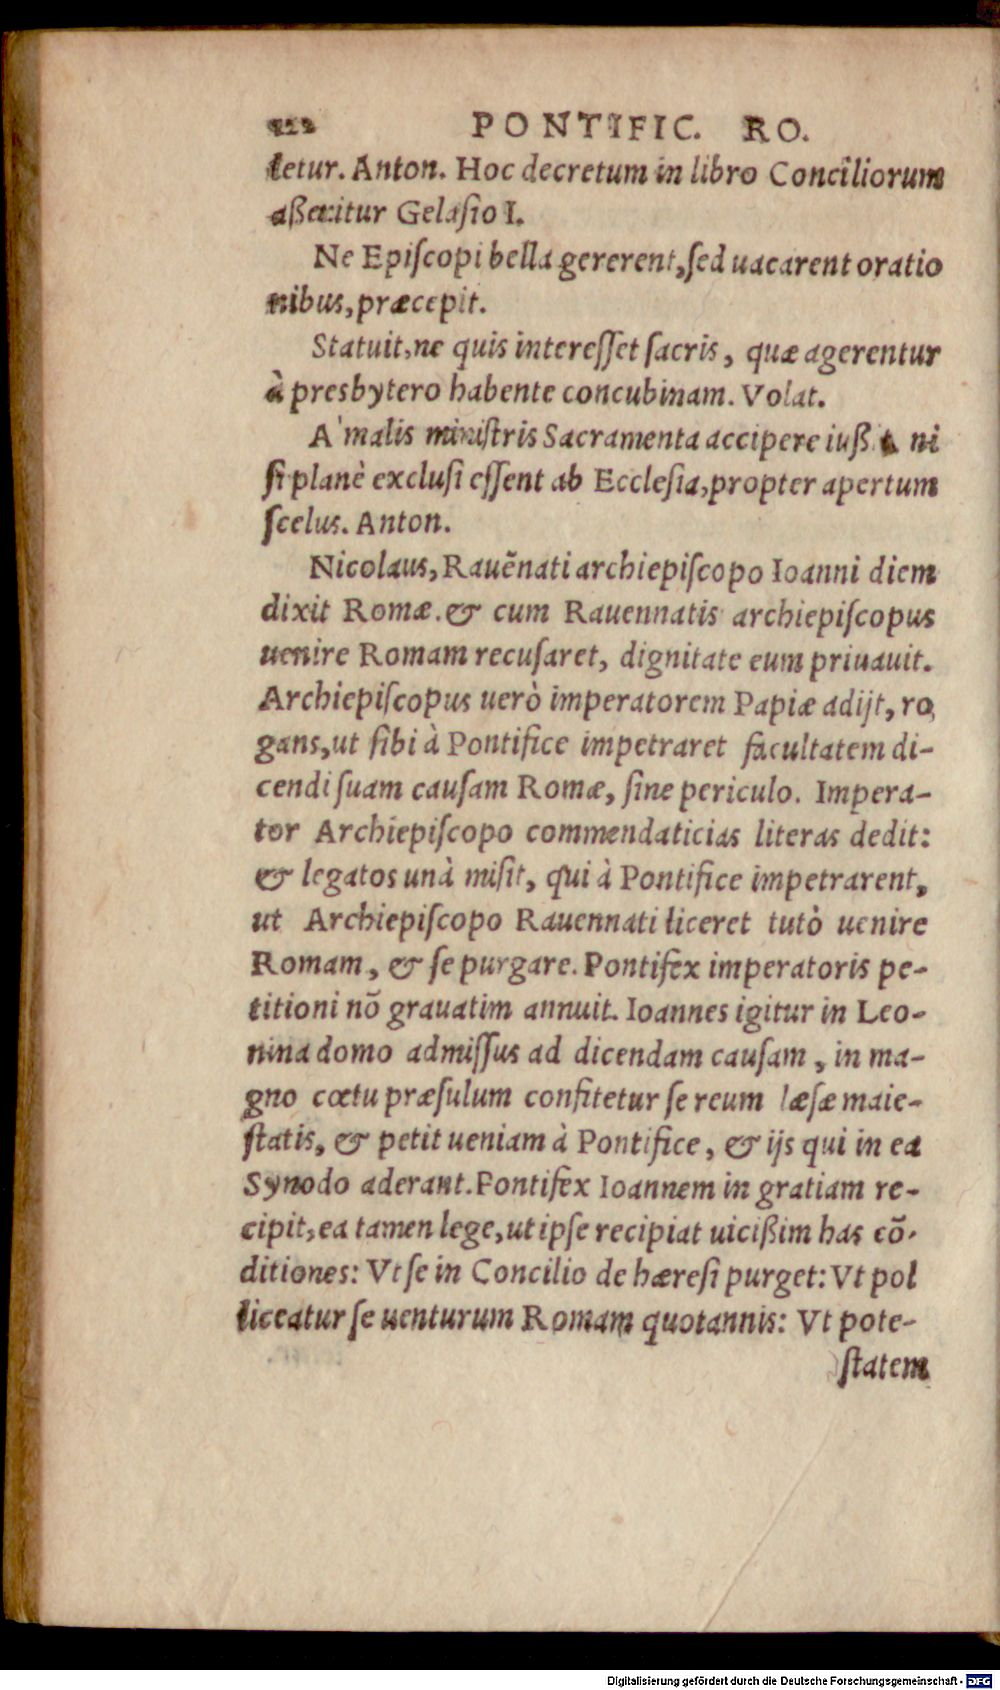 212 PONTIFIC. RO.
letur. Anton. Hoc decretum in libro Conciliorum
aßeritur Gelaſio I.
Ne Epiſcopi bella gererent, ſed uacarent oratio
nibus, præcepit.
Statuit, ne quis intereſſet ſacris, quæ agerentur
à presbytero habente concubinam. Volat.
A' malis miniſtris Sacramenta accipere iußit, ni
ſi planè excluſi eſſent ab Eccleſia, propter apertum
ſcelus. Anton.
Nicolaus, Rauēnati archiepiſcopo Ioanni diem
dixit Romæ. & cum Rauennatis archiepiſcopus
uenire Romam recuſaret, dignitate eum priuauit.
Archiepiſcopus uerò imperatorem Papiæ adijt, ro
gans, ut ſibi à Pontifice impetraret facultatem di-
cendi ſuam cauſam Romæ, ſine periculo. Impera-
tor Archiepiſcopo commendaticias literas dedit:
& legatos unà miſit, qui à Pontifice impetrarent,
ut Archiepiſcopo Rauennati liceret tutò uenire
Romam, & ſe purgare. Pontifex imperatoris pe-
titioni nō grauatim annuit. Ioannes igitur in Leo-
nina domo admiſſus ad dicendam cauſam, in ma-
gno cœtu præſulum confitetur ſe reum læſæ maie-
ſtatis, & petit ueniam à Pontifice, & ijs qui in ea
Synodo aderant. Pontifex Ioannem in gratiam re-
cipit, ea tamen lege, ut ipſe recipiat uicißim has cō-
ditiones: Vt ſe in Concilio de hæreſi purget: Vt pol
liceatur ſe uenturum Romam quotannis: Vt pote-
ſtatem
Digitalisierung gefördert durch die Deutsche Forschungsgemeinschaft - DFG